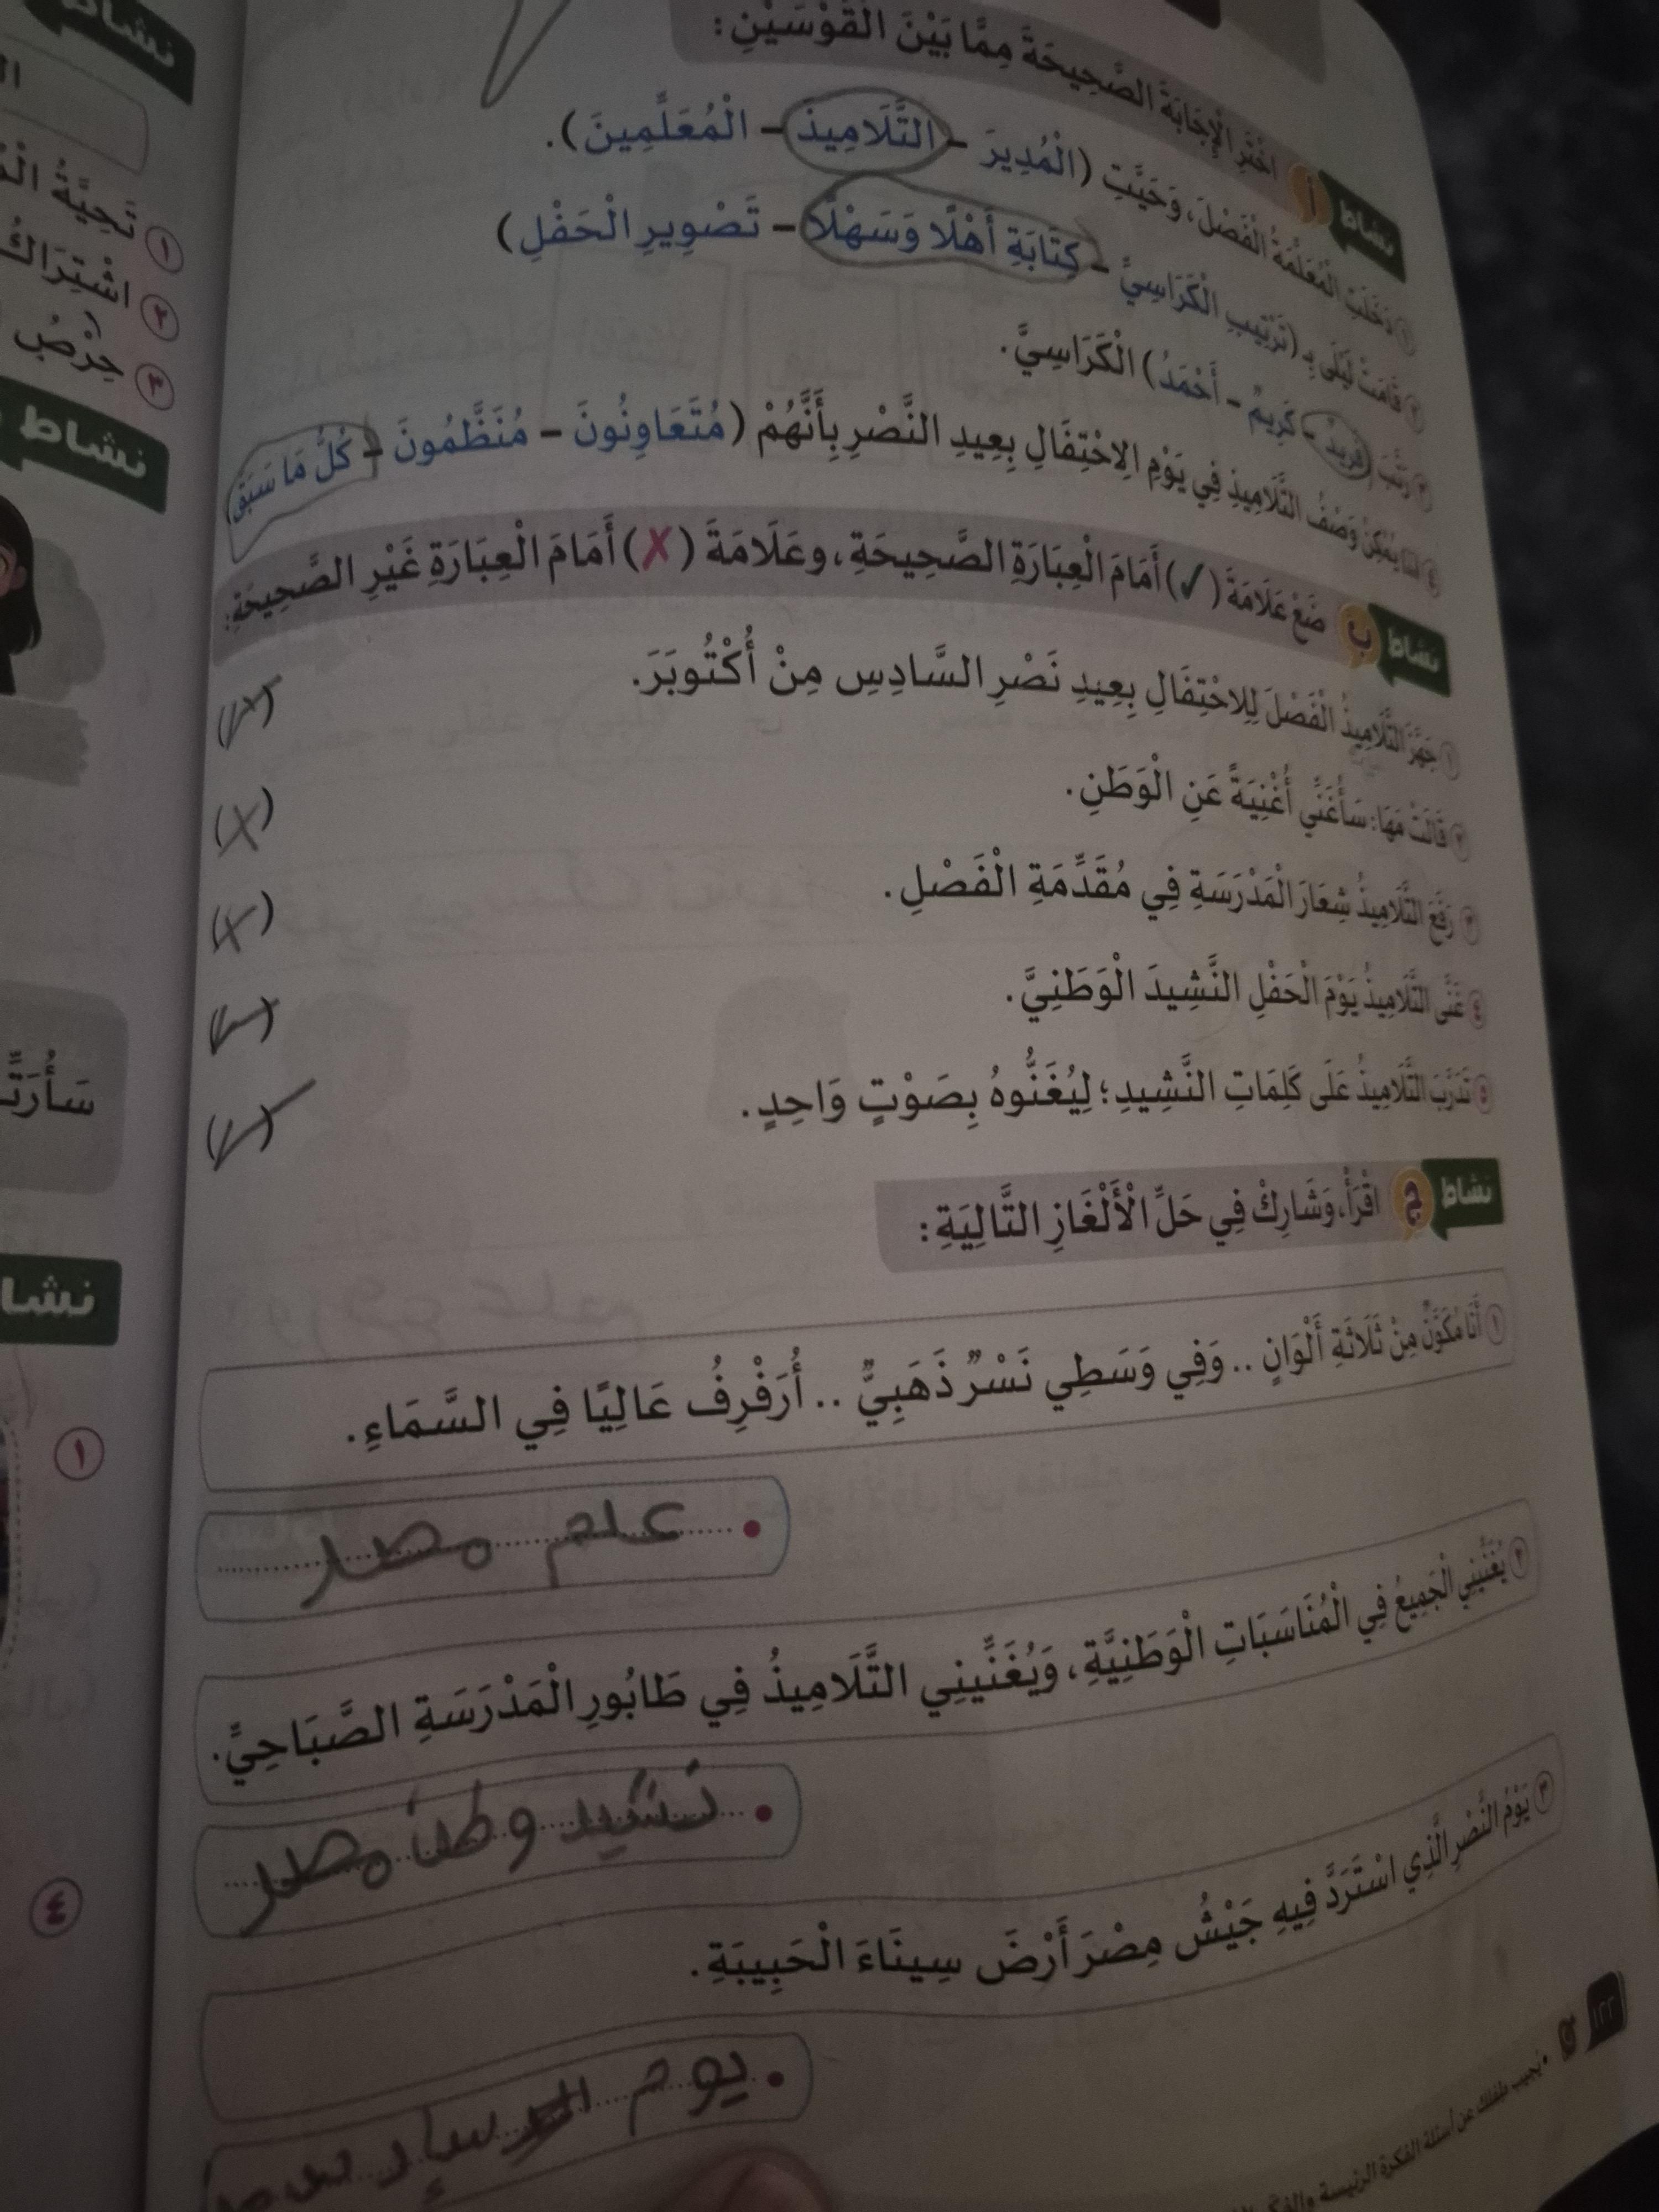 اخْتَرِ الْإِجَابَةَ الصَّحِيحَةَ مِمَّا بَيْنَ الْقَوْسَيْنِ:
نشاط أ
١ دَخَلَتِ الْمُعَلِّمَةُ الْفَصْلَ، وَحَيَّتِ (الْمُدِيرَ – التَّلَامِيذَ – الْمُعَلِّمِينَ).
٢ قَامَتْ لَيْلَى بِـ (تَرْتِيبِ الْكَرَاسِيِّ – كِتَابَةِ أَهْلًا وَسَهْلًا – تَصْوِيرِ الْحَفْلِ)
٣ رَتَّبَ (فَرِيدٌ – كَرِيمٌ – أَحْمَدُ) الْكَرَاسِيَّ.
٤ يُمْكِنُ وَصْفُ التَّلَامِيذِ فِي يَوْمِ الِاحْتِفَالِ بِعِيدِ النَّصْرِ بِأَنَّهُمْ (مُتَعَاوِنُونَ – مُنَظَّمُونَ – كُلُّ مَا سَبَقَ
نشاط ب ضَعْ عَلَامَةَ (✓) أَمَامَ الْعِبَارَةِ الصَّحِيحَةِ، وعَلَامَةَ (✗) أَمَامَ الْعِبَارَةِ غَيْرِ الصَّحِيحَةِ:
١ جَهَّزَ التَّلَامِيذُ الْفَصْلَ لِلِاحْتِفَالِ بِعِيدِ نَصْرِ السَّادِسِ مِنْ أُكْتُوبَرَ. (✓)
٢ قَالَتْ مَهَا: سَأُغَنِّي أُغْنِيَةً عَنِ الْوَطَنِ. (✗)
٣ رَفَعَ التَّلَامِيذُ شِعَارَ الْمَدْرَسَةِ فِي مُقَدِّمَةِ الْفَصْلِ. (✗)
٤ غَنَّى التَّلَامِيذُ يَوْمَ الْحَفْلِ النَّشِيدَ الْوَطَنِيَّ. (✓)
٥ تَدَرَّبَ التَّلَامِيذُ عَلَى كَلِمَاتِ النَّشِيدِ؛ لِيُغَنُّوهُ بِصَوْتٍ وَاحِدٍ. (✓)
نشاط ج اقْرَأْ، وَشَارِكْ فِي حَلِّ الْأَلْغَازِ التَّالِيَةِ:
١ أَنَا مُكَوَّنٌ مِنْ ثَلَاثَةِ أَلْوَانٍ .. وَفِي وَسَطِي نَسْرٌ ذَهَبِيٌّ .. أُرَفْرِفُ عَالِيًا فِي السَّمَاءِ.
علم مصر
٢ يُغَنِّينِي الْجَمِيعُ فِي الْمُنَاسَبَاتِ الْوَطَنِيَّةِ، وَيُغَنِّينِي التَّلَامِيذُ فِي طَابُورِ الْمَدْرَسَةِ الصَّبَاحِيِّ.
نشيد وطن مصر
٣ يَوْمُ النَّصْرِ الَّذِي اسْتَرَدَّ فِيهِ جَيْشُ مِصْرَ أَرْضَ سِينَاءَ الْحَبِيبَةِ.
يوم السادس
١٢٢
• يُجيب طفلك عن أسئلة الفكرة الرئيسة والفكر
نشاط
١ تَحِيَّةُ
٢ اشْتِرَاكُ
٣ حِرْصُ
نشاط
١
٤